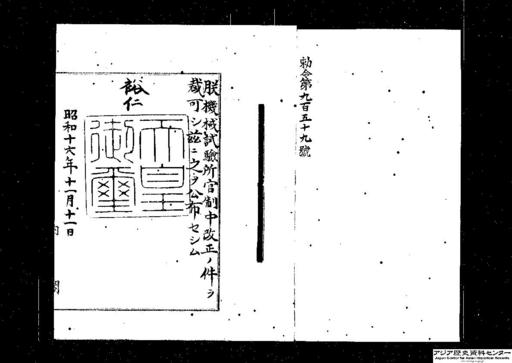 勅令第九百五十九號
朕機械試驗所官制中改正ノ件ヲ
裁可シ茲ニ之ヲ公布セシム
裕仁
天皇
御璽
昭和十六年十一月十一日
内閣
アジア歴史資料センター
Japan Center for Asian Historical Records